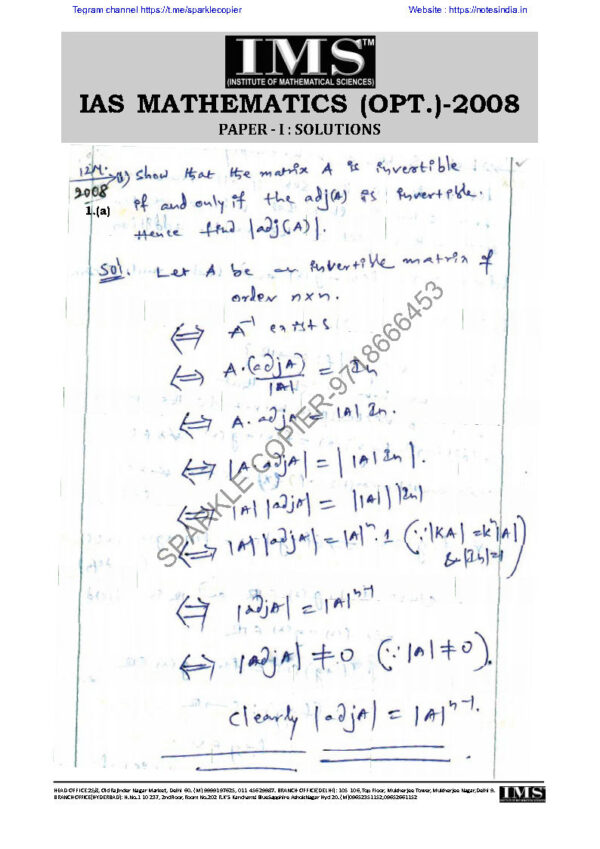 Tegram channel https://t.me/sparklecopier Website : https://notesindia.in
IMS TM
(INSTITUTE OF MATHEMATICAL SCIENCES)
IAS MATHEMATICS (OPT.)-2008
PAPER - I : SOLUTIONS
12M. (1) Show that the matrix A is invertible
2008 if and only if the adj(A) is invertible.
1.(a) Hence find |adj(A)|.
Sol. Let A be an invertible matrix of
order n×n.
⇔ A⁻¹ exists
⇔ A·(adjA)/|A| = In
⇔ A·adjA = |A| In.
⇔ |A adjA| = ||A| In|.
⇔ |A| |adjA| = ||A|| |In|
⇔ |A| |adjA| = |A|ⁿ. 1 (∵ |KA| = kⁿ|A|
& |In|=1)
⇔ |adjA| = |A|ⁿ⁻¹
⇔ |adjA| ≠ 0 (∵ |A| ≠ 0).
Clearly |adjA| = |A|ⁿ⁻¹.
SPARKLE COPIER-9718666453
HEAD OFFICE:25/8, Old Rajinder Nagar Market, Delhi 60. (M) 9999197625, 011 45629987. BRANCH OFFICE(DELHI): 105 106, Top Floor, Mukherjee Tower, Mukherjee Nagar, Delhi 9.
BRANCH OFFICE(HYDERBAD): H.No.1 10 237, 2nd Floor, Room No.202 R.K'S Kancham's Blue Sapphire Ashok Nagar Hyd 20. (M)09652351152, 09652661152
IMS